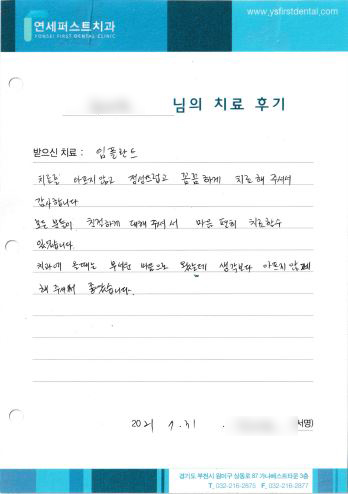 연세퍼스트치과
YONSEI FIRST DENTAL CLINIC
www.ysfirstdental.com
님의 치료 후기
받으신 치료 : 임플란트
치료를 아프지 않고 정성스럽고 꼼꼼하게 치료해 주셔서
감사합니다
모든 분들이 친절하게 대해 주셔서 마음 편히 치료할수
있었습니다
치과에 올때는 무서운 마음으로 왔는데 생각보다 아프지 않게
해 주셔서 좋았습니다.
2021 . 7. 31 .
서명)
경기도 부천시 원미구 상동로 87 가나베스트타운 3층
T. 032-216-2875 F. 032-216-2877